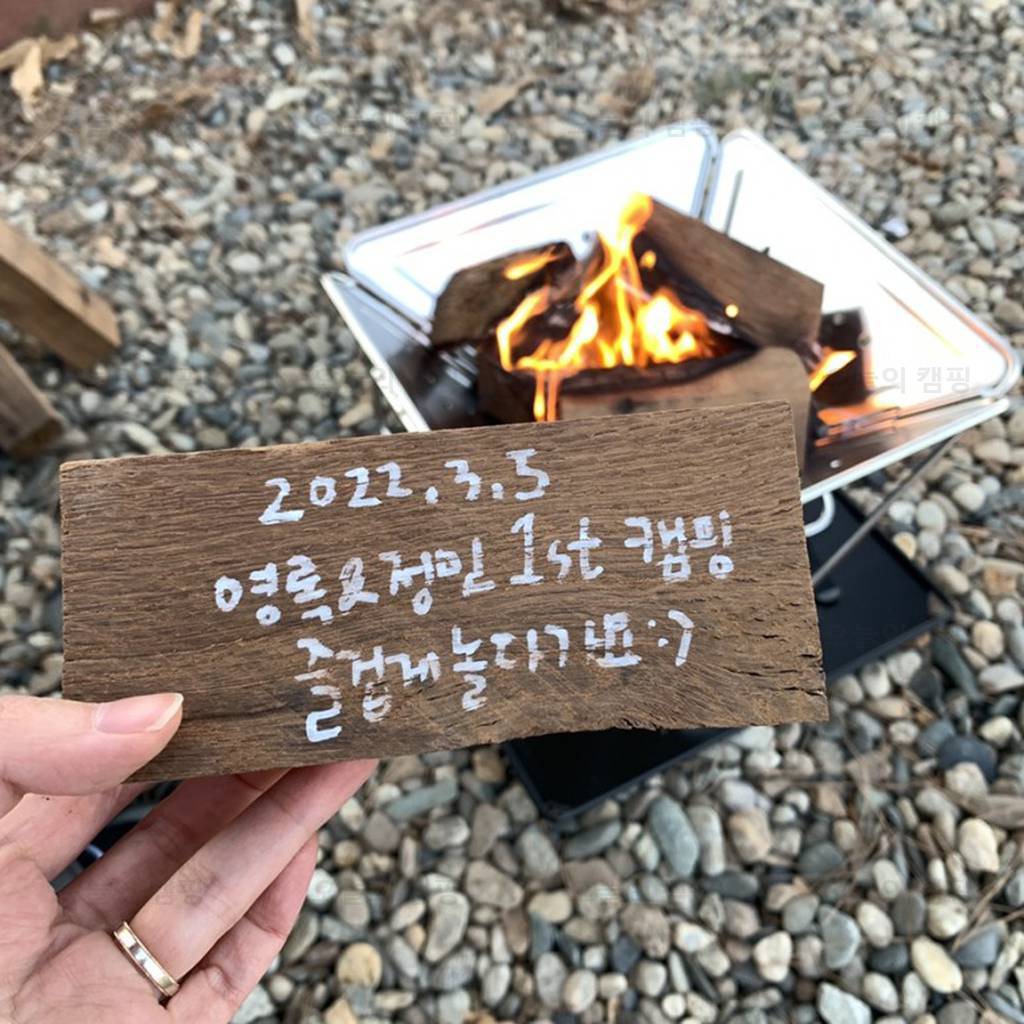 2022.3.5
영록&정민 1st 캠핑
즐겁게 놀다가묘:7
의 캠핑